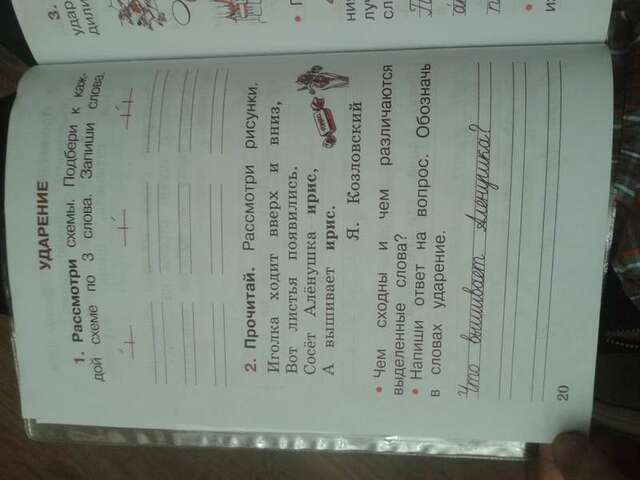 УДАРЕНИЕ
1. Рассмотри схемы. Подбери к каж-
дой схеме по 3 слова. Запиши слова.
2. Прочитай. Рассмотри рисунки.
Иголка ходит вверх и вниз,
Вот листья появились.
Сосёт Алёнушка ирис,
А вышивает ирис.
Я. Козловский
• Чем сходны и чем различаются
выделенные слова?
• Напиши ответ на вопрос. Обозначь
в словах ударение.
Что вышивает Алёнушка?
20
3.
удар
дили